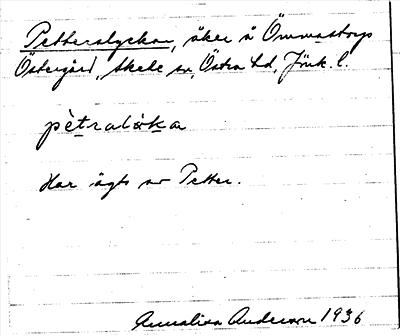 Petterslyckan, åker å Ömmestorps
Östergård, Askeryd sn, Östra hd, Jönk. l.
pètralỳka
Har ägts av Petter.
Annalisa Anderson 1936